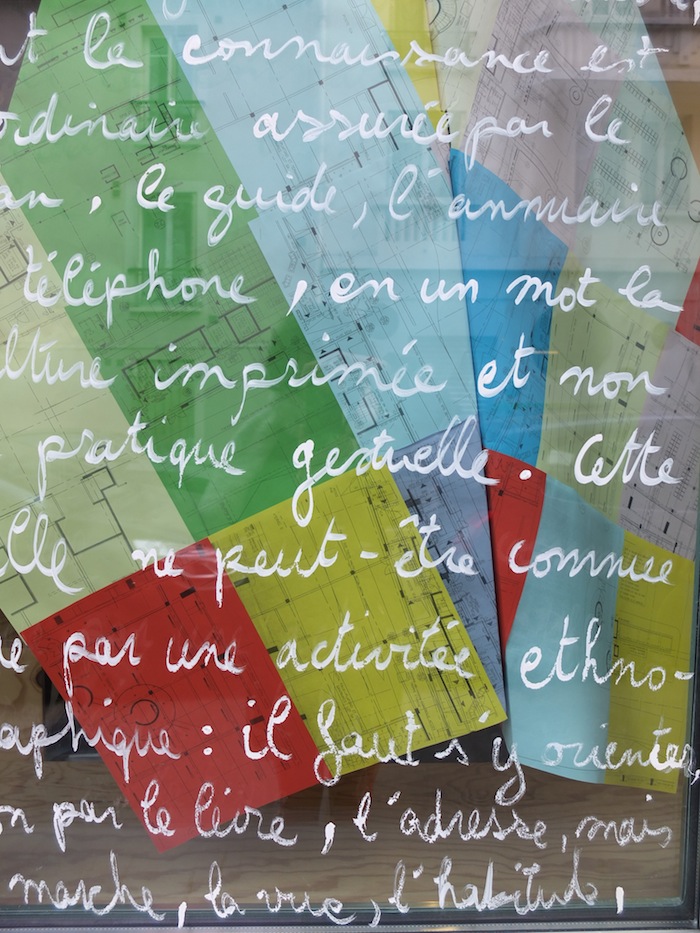 t la connaissance est
ordinaire assurée par le
an, le guide, l'annuaire
téléphone, en un mot la
lture imprimée et non
pratique gestuelle. Cette
elle ne peut-être connue
e par une activitée ethno-
aphique : il faut s'y orienter,
n par le livre, l'adresse, mais
marche, la vue, l'habitude,